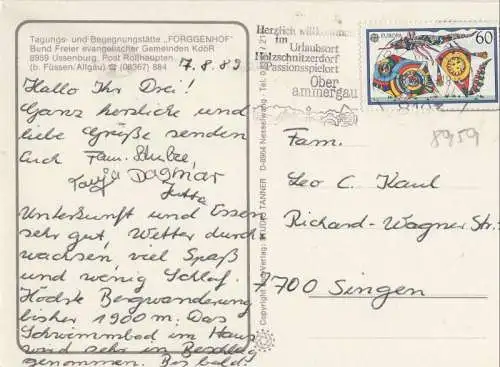 Tagungs- und Begegnungsstätte „FORGGENHOF"
Bund Freier evangelischer Gemeinden KdöR
8959 Ussenburg, Post Roßhaupten
(b. Füssen/Allgäu) ✆ (08367) 884
7.8.89
Hallo Ihr Drei!
Ganz herzliche und
liebe Grüße senden
Euch Fam. Schulze,
Tanja Dagmar
Jutta
Unterkunft und Essen
sehr gut, Wetter durch
wachsen, viel Spaß
und wenig Schlaf.
Höchste Bergwanderung
bisher 1900 m. Das
Schwimmbad im Haus
wird sehr in Beschlag
genommen. Bis bald.
Copyright und Verlag: STUDIO TANNER D-8964 Nesselwang, Tel. 0 / 21
Herzlich willkommen
im
Urlaubsort
Holzschnitzerdorf
Passionsspielort
Ober
ammergau
EUROPA 60
8959
Fam.
Leo C. Kaul
Richard-Wagner Str.
7700 Singen